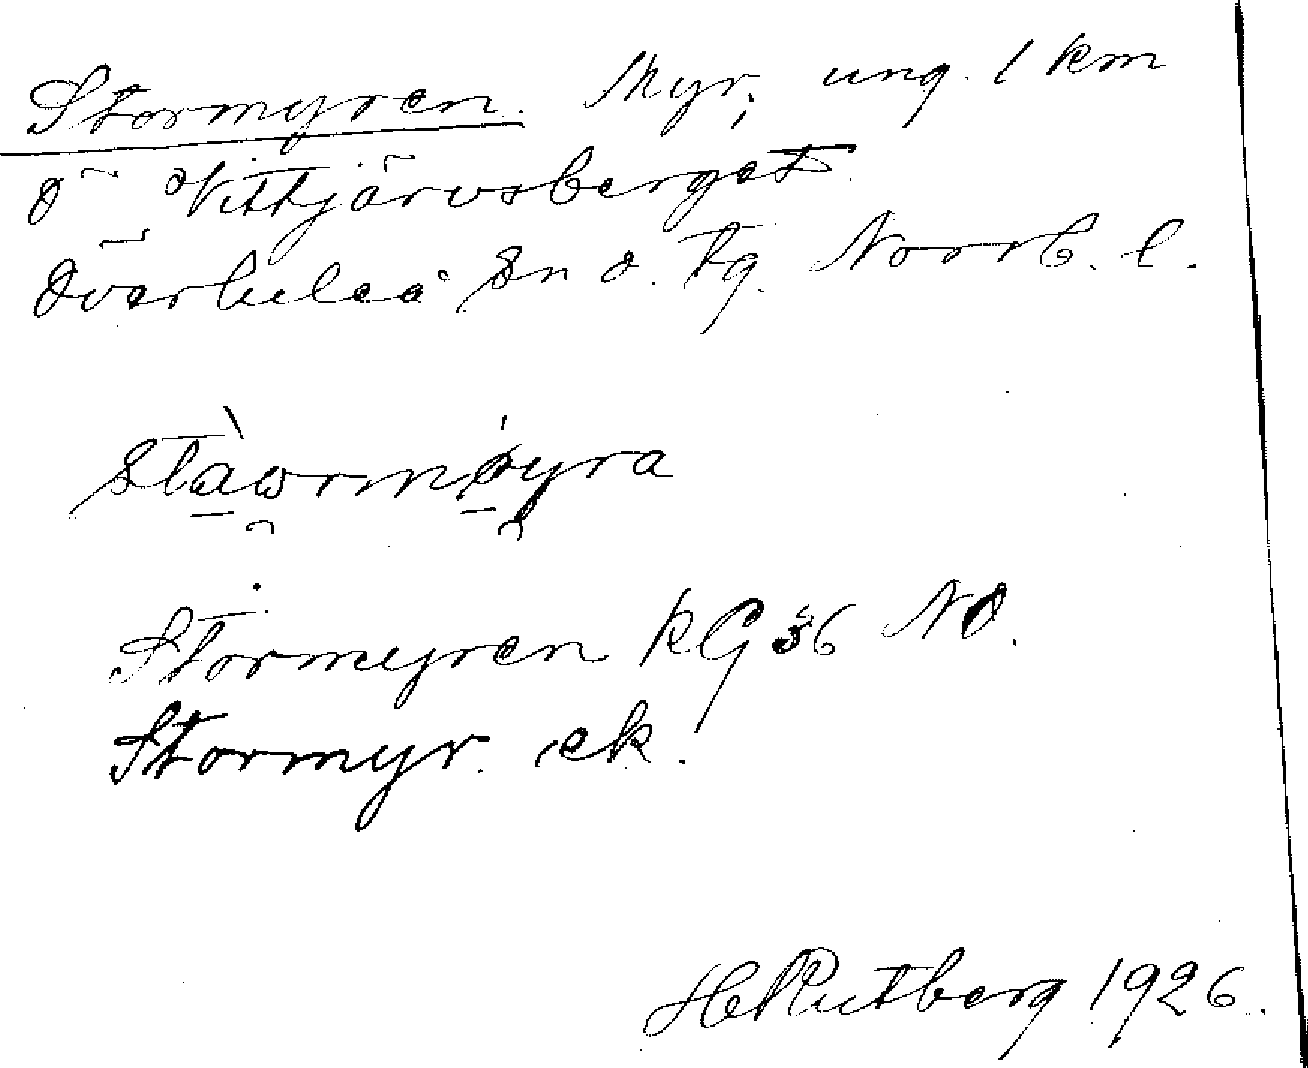 Stormyren. Myr, ung. 1 km
ö Vittjärvsberget
Överluleå sn o. tg. Norrb. l.
Stormyren KG 36 NO.
Stormyr. ek.
H Rutberg 1926.